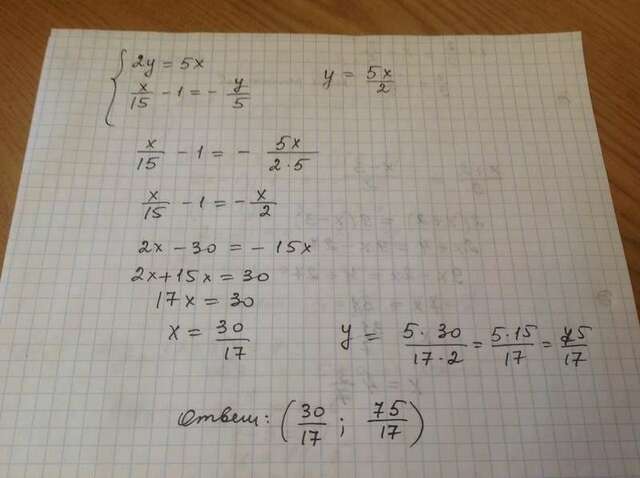 { 2y = 5x
x/15 - 1 = - y/5
y = 5x/2
x/15 - 1 = - 5x/(2·5)
x/15 - 1 = - x/2
2x - 30 = - 15x
2x + 15x = 30
17x = 30
x = 30/17
y = (5·30)/(17·2) = (5·15)/17 = 75/17
Ответ: (30/17 ; 75/17)